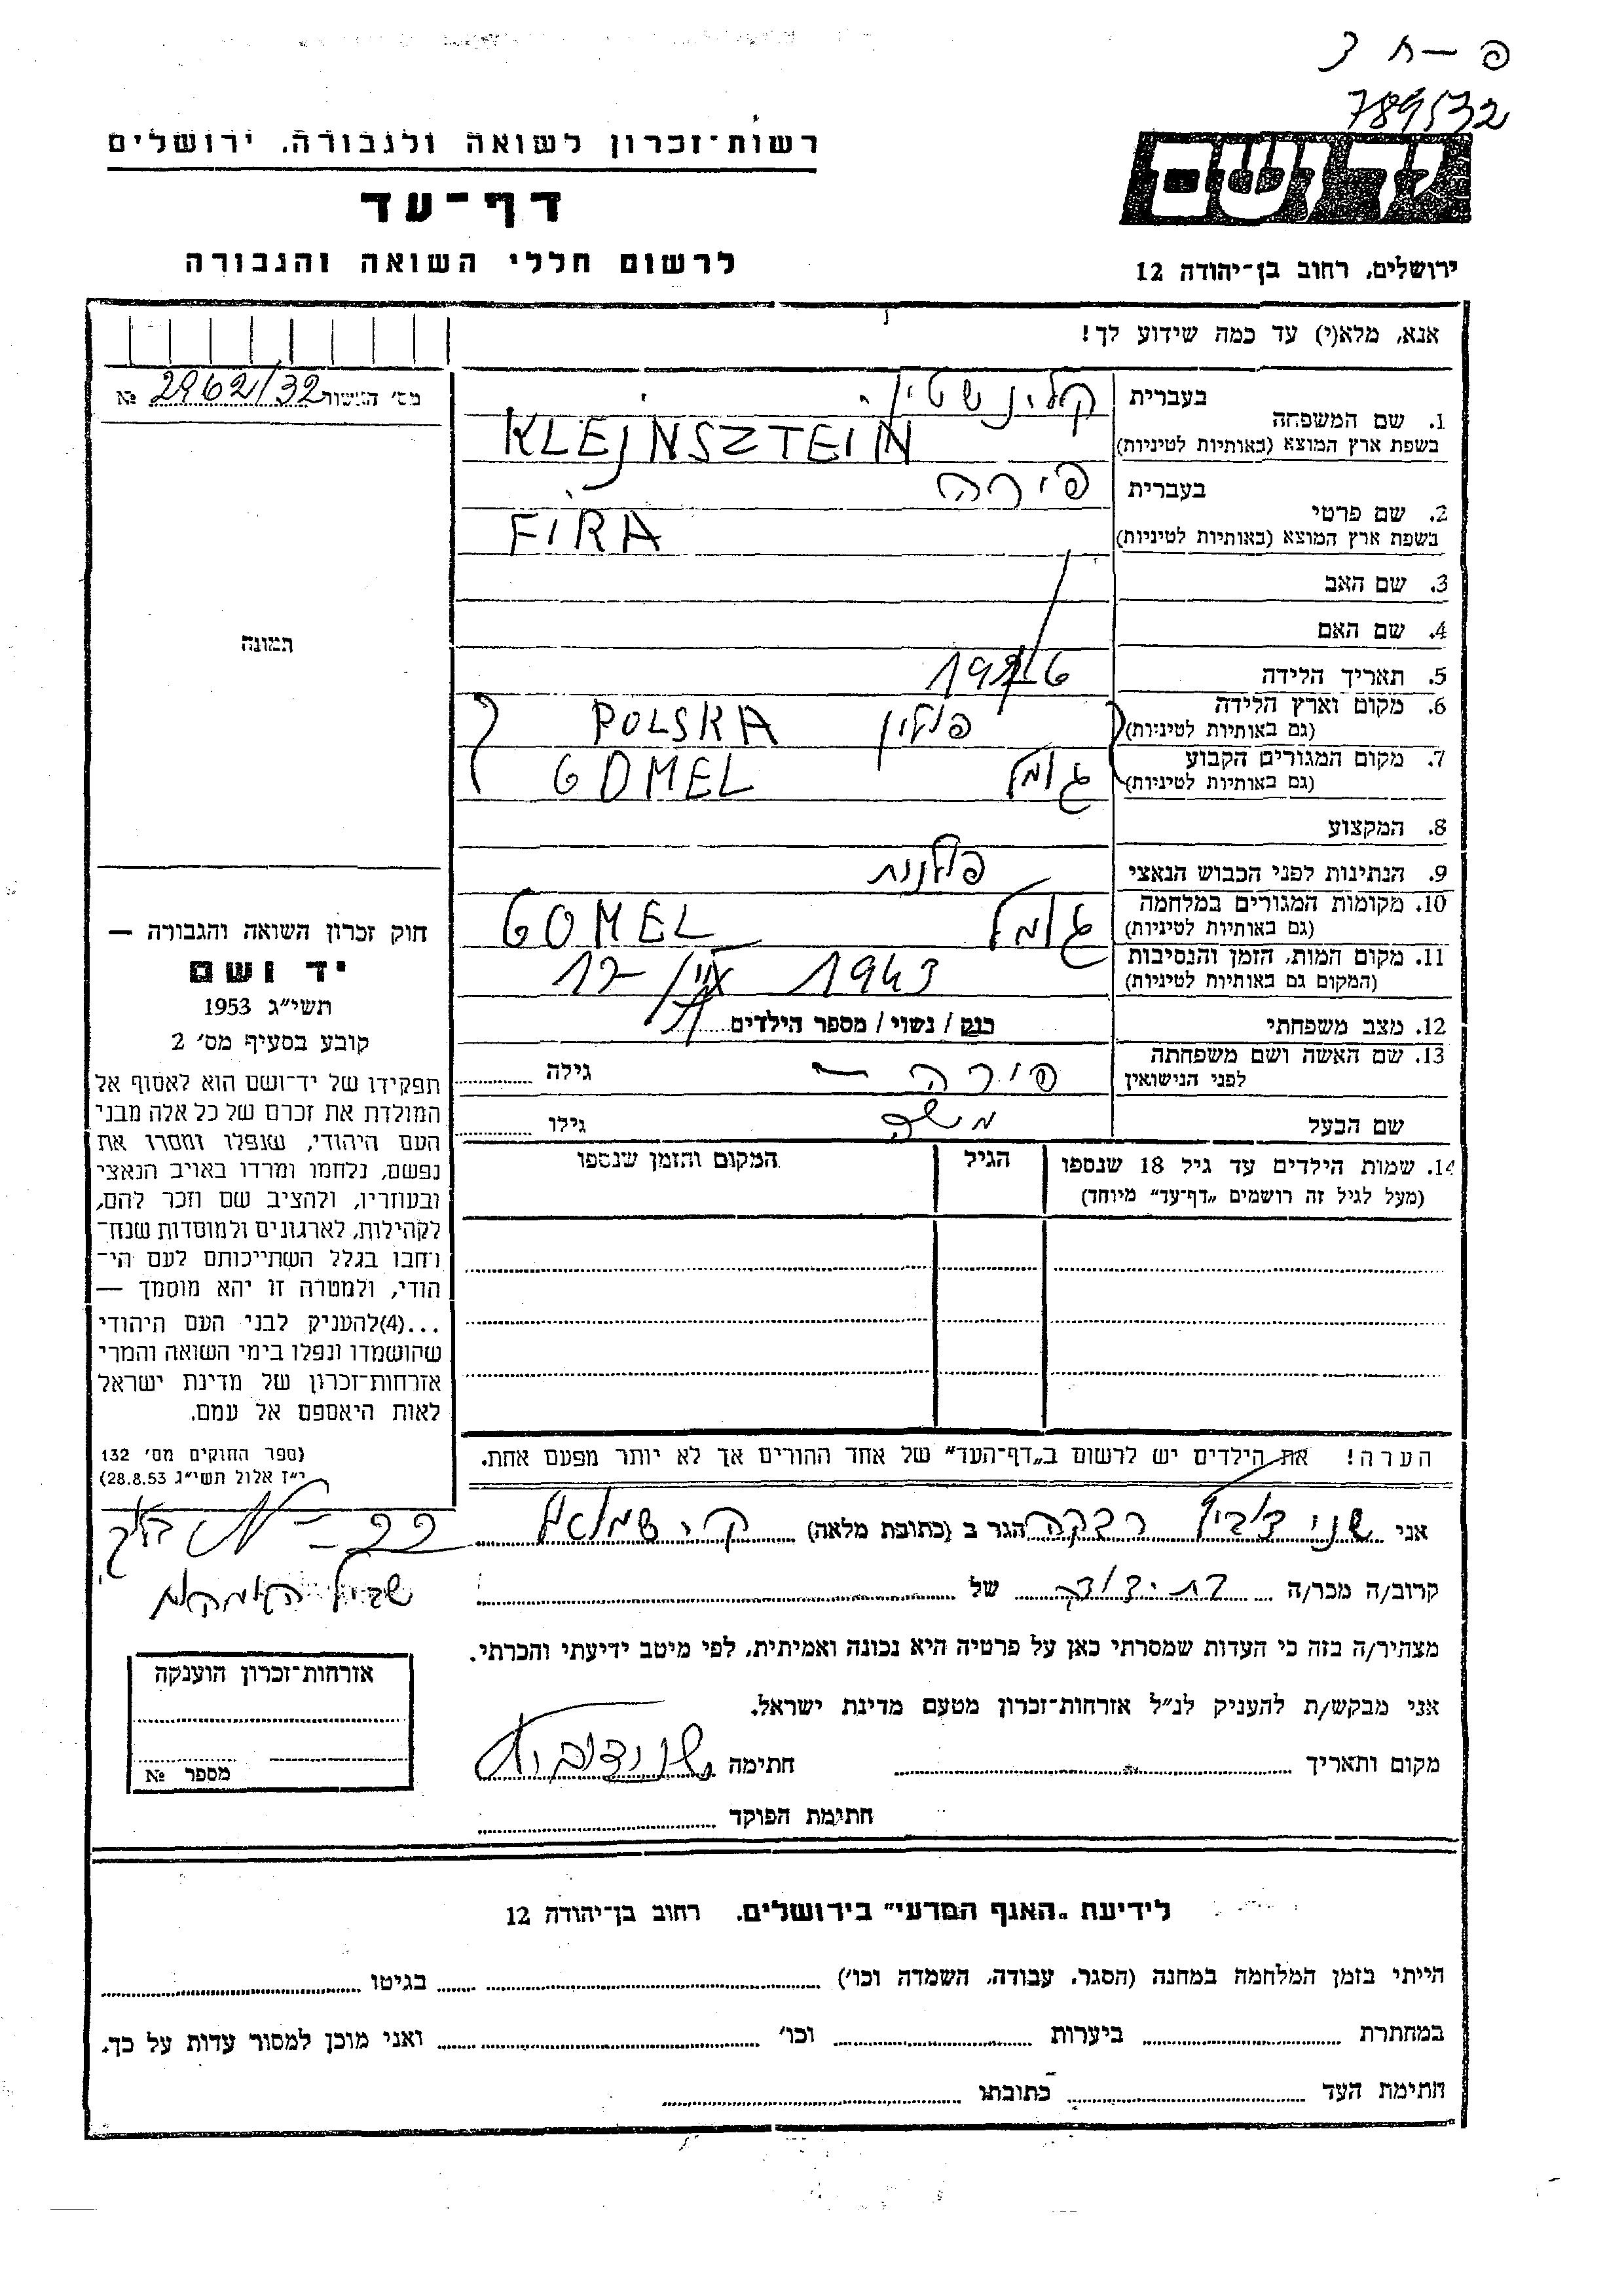 פ — ח 3
789532
יד ושם
ירושלים, רחוב בן־יהודה 12
רשות־זכרון לשואה ולגבורה, ירושלים
דף־עד
לרשום חללי השואה והגבורה
אנא, מלא(י) עד כמה שידוע לך!
2962/32 №
1. שם המשפחה
בעברית קלינשטיין
בשפת ארץ המוצא (באותיות לטיניות) KLEJNSZTEIN
2. שם פרטי
בעברית פירה
בשפת ארץ המוצא (באותיות לטיניות) FIRA
3. שם האב
4. שם האם
5. תאריך הלידה
6. מקום וארץ הלידה
(גם באותיות לטיניות) פולין POLSKA
7. מקום המגורים הקבוע
(גם באותיות לטיניות) גומל GOMEL
8. המקצוע
9. הנתינות לפני הכבוש הנאצי פולנית
10. מקומות המגורים במלחמה
(גם באותיות לטיניות) גומל GOMEL
11. מקום המות, הזמן והנסיבות
(המקום גם באותיות לטיניות) 1943
12. מצב משפחתי רוק / נשוי / מספר הילדים
13. שם האשה ושם משפחתה
לפני הנישואין פירה — גילה
שם הבעל משה גילו
14. שמות הילדים עד גיל 18 שנספו
(מעל לגיל זה רושמים „דף־עד” מיוחד)
הגיל
המקום והזמן שנספו
הערה! את הילדים יש לרשום ב„דף־העד” של אחד ההורים אך לא יותר מפעם אחת.
תמונה
חוק זכרון השואה והגבורה —
יד ושם
תשי״ג 1953
קובע בסעיף מס׳ 2
תפקידו של יד־ושם הוא לאסוף אל
המולדת את זכרם של כל אלה מבני
העם היהודי, שנפלו ומסרו את
נפשם, נלחמו ומרדו באויב הנאצי
ובעוזריו, ולהציב שם וזכר להם,
לקהילות, לארגונים ולמוסדות שנח־
רחבו בגלל השתייכותם לעם הי־
הודי, ולמטרה זו יהא מוסמך —
...(4)להעניק לבני העם היהודי
שהושמדו ונפלו בימי השואה והמרי
אזרחות־זכרון של מדינת ישראל
לאות היאספם אל עמם.
(ספר החוקים מס׳ 132
י״ז אלול תשי״ג 28.8.53)
אני רבקה הגר ב (כתובת מלאה) ק׳ שמואל
22
שביל
קרוב/ה מכר/ה בת־דודה של
מצהיר/ה בזה כי העדות שמסרתי כאן על פרטיה היא נכונה ואמיתית, לפי מיטב ידיעתי והכרתי.
אני מבקש/ת להעניק לנ״ל אזרחות־זכרון מטעם מדינת ישראל.
מקום ותאריך חתימה
חתימת הפוקד
אזרחות־זכרון הוענקה
מספר №
לידיעת „האגף המדעי” בירושלים, רחוב בן־יהודה 12
הייתי בזמן המלחמה במחנה (הסגר, עבודה, השמדה וכו׳) בגיטו
במחתרת ביערות וכו׳ ואני מוכן למסור עדות על כך.
חתימת העד כתובתו